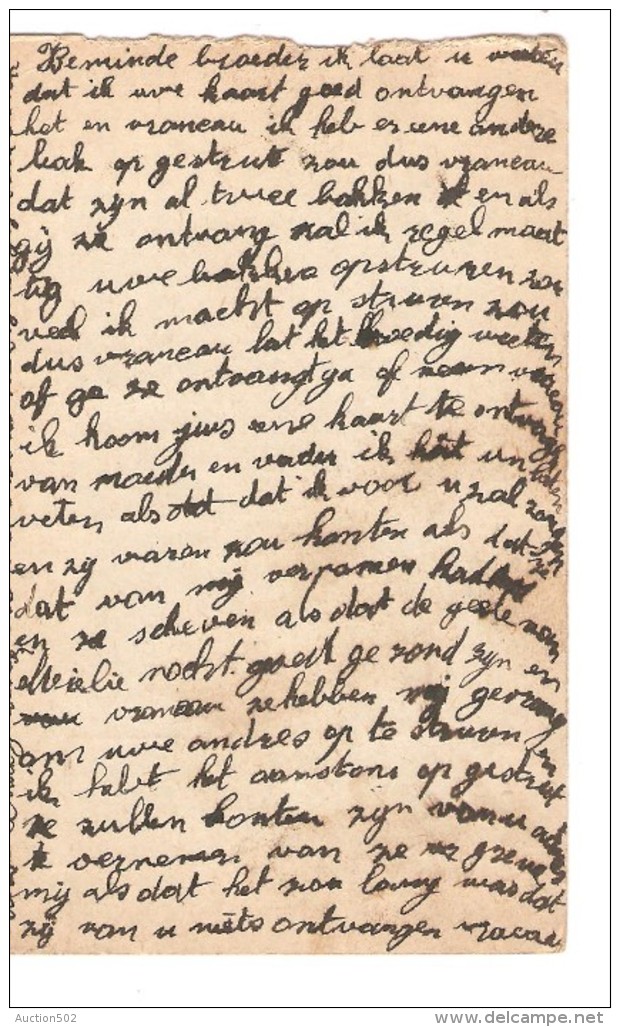 Beminde broeder ik laat u weten
dat ik uwe kaart goed ontvangen
het en vraneau ik heb er eene andere
bak op gestrut zou dus vraneau
dat zijn al twee bakken en als
gij ze ontvang zal ik regelmaat
tig uwe bakken opsturen zou
veel ik macht op sturen zou
dus vraneau lat het spoedig weeten
of ge ze ontvangt ja of neen vraneau
ik koom juis eene kaart te ontvangen
van moeder en vader ik het un laten
veten als dat ik voor u zal zorgen
en zij waren zou konten als dat ze
dat van mij vernamen hadden
en ze scheven als dat de geele van
melie nocht goed gezond zijn en
vraneau ze hebben mij gevraag
om uwe andres op te sturen en
ik hebt het aanstons op gestrut
ze zullen konten zijn van u
te vernemen van ze
mij als dat het zou lang was dat
zij van u niets ontvangen
Auction502